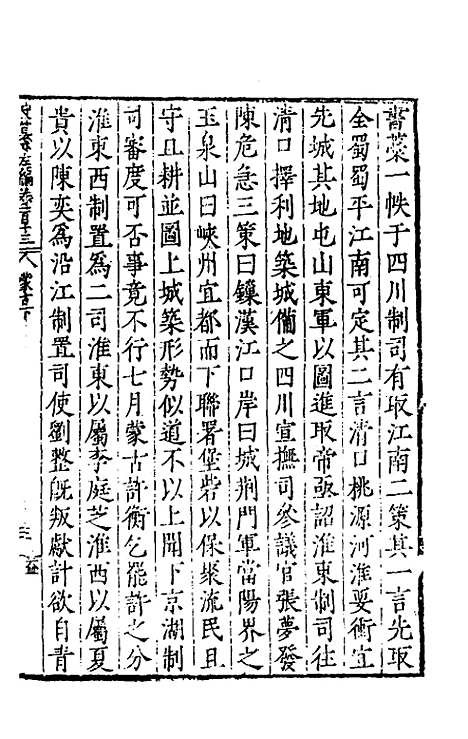 書藁一帙于四川制司有取江南二策其一言先取
全蜀蜀平江南可定其二言清口桃源河淮要衝宜
先城其地屯山東軍以圖進取帝亟詔淮東制司往
清口擇利地築城備之四川宣撫司參議官張夢發
陳危急三策曰鏁漢江口岸曰城荆門軍當陽界之
玉泉山曰峽州宜都而下聯署堡砦以保聚流民且
守且耕並圖上城築形勢似道不以上聞下京湖制
司審度可否事竟不行七月蒙古許衡乞罷許之分
淮東西制置為二司淮東以屬李庭芝淮西以屬夏
貴以陳奕為沿江制置司使劉整旣叛獻計欲自青
左編卷百十三 蒙古下
三